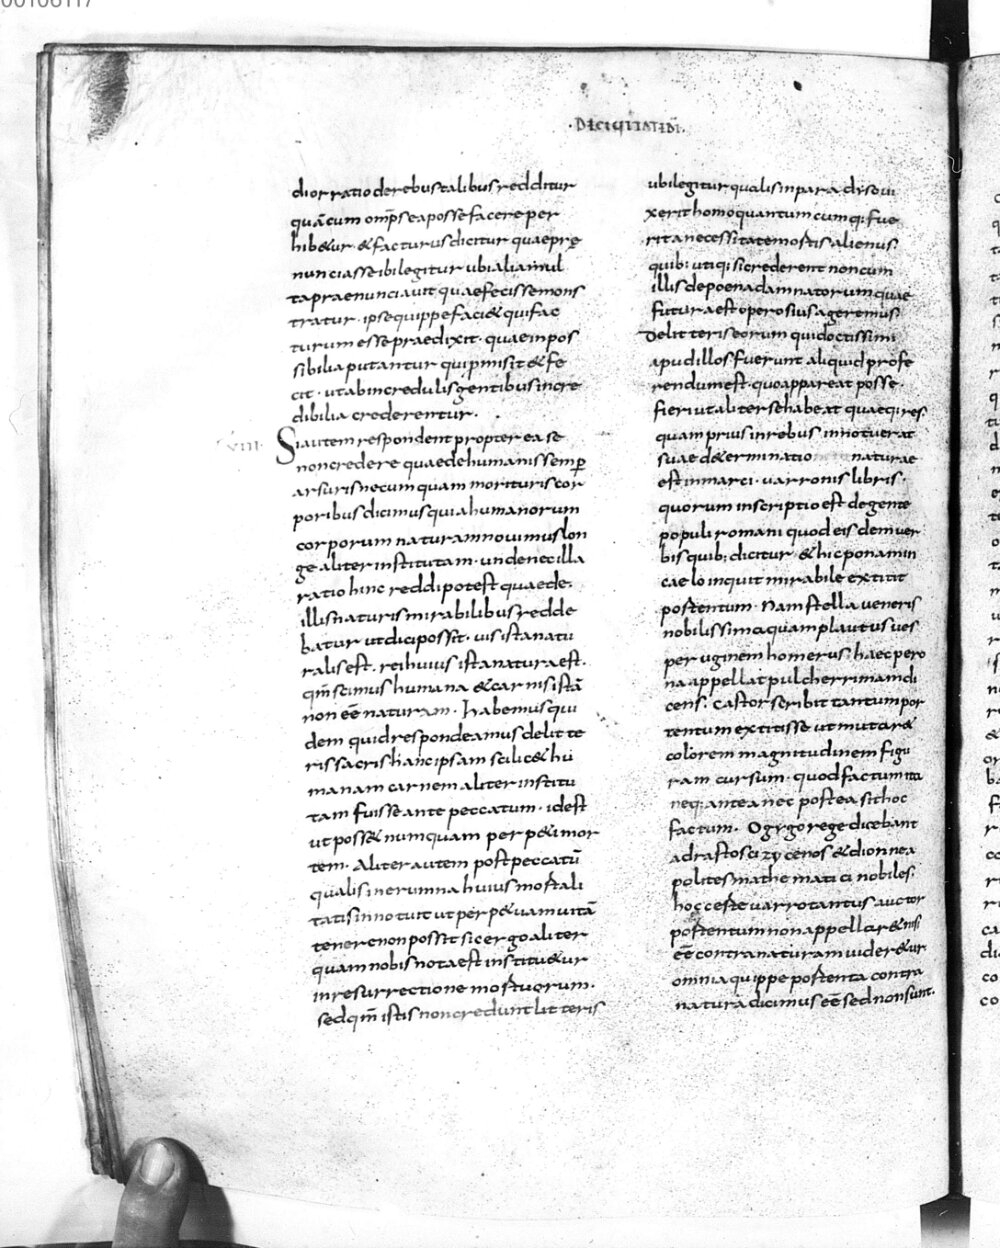 00106117
·DECIUITATEDĪ·
dior ratio de rebus talibus redditur
quācum omp̄s ea posse facere per
hib&ur· & facturus dicitur quae prę
nunciasse ibi legitur ubi alia mul
ta praenunciauit quae fecisse mons
tratur· ipse quippe faci& qui fac
turum esse praedixit· quae inpos
sibilia putantur qui pmisit & fe
cit· ut ab incredulis gentibus incre
dibilia crederentur·
VIII· Si autem respondent propterea se
non credere quae de humanis semp̄
arsuris nec umquam morituris cor
poribus dicimus quia humanorum
corporum naturam nouimus lon
ge aliter institutam· unde nec illa
ratio hinc reddi potest quae de·
illis naturis mirabilibus redde
batur ut dici possit· uis ista natu
ralis est· rei huius ista natura est·
qm̄ scimus humana & carnis istā
non eē naturam· Habemus qui
dem quid respondeamus de litte
ris sacris hanc ipsam scilic& hu
manam carnem aliter institu
tam fuisse ante peccatum· id est
ut poss& numquam perp&i mor
tem· Aliter autem post peccatū
qualis in erumna huius mortali
tatis innotuit ut perp&uam uitā
tenere non possit sic ergo aliter
quam nobis nota est institu&ur
in resurrectione mortuorum·
sed qm̄ istis non credunt litteris
ubi legitur qualis in paradiso ui
xerit homo quantumcumq; fue
rit a necessitate mortis alienus
quib; utiq; si crederent non cum
illis de poena damnatorum quae
futura est operosius ageremus
De litteris eorum qui doctissimi
apud illos fuerunt aliquid profe
rendum est· quo appareat posse·
fieri ut aliter se habeat quaeq; res
quam prius in rebus innotuerat
suae d&erminatio naturae
est in marci· uarronis libris·
quorum inscriptio est de gente
populi romani quod eis dem uer
bis quib; dicitur & hic ponam in
caelo inquit mirabile extitit
portentum· Nam stella ueneris
nobilissima quam plautus ues
peruginem homerus haespero
na appellat pulcherrimam di
cens· Castor scribit tantum por
tentum extitisse ut mutar&
colorem magnitudinem figu
ram cursum· quod factum ita
neq; antea nec postea sit hoc
factum· Ogygo rege dicebant
adrastos cizycenos & dion nea
polites mathematici nobiles·
hoc certe uarro tantus auctor
portentum non appellar& nisi
eē contra naturam uider&ur
omnia quippe portenta contra
naturā dicimus eē sed non sunt·